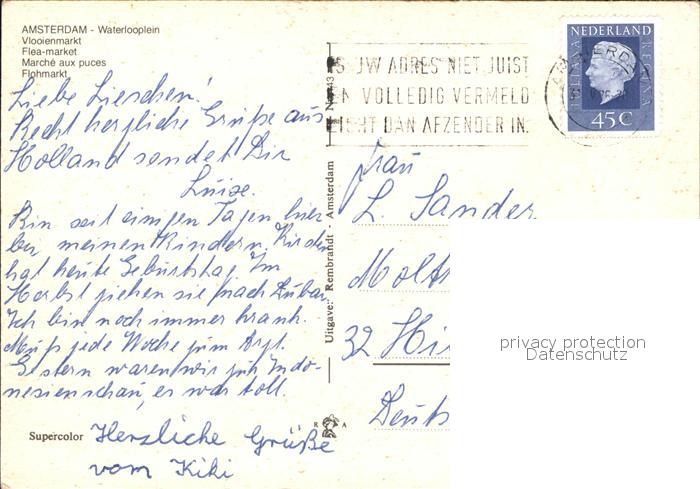 AMSTERDAM - Waterlooplein
Vlooienmarkt
Flea-market
Marché aux puces
Flohmarkt
Liebe Lieschen!
Recht herzliche Grüße aus
Holland sendet Dir
Luise.
Bin seit einigen Tagen hier
bei meinen Kindern.
hat heute Geburtstag. Im
Herbst ziehen sie nach
Ich bin noch immer krank.
Muß jede Woche zum Arzt.
Gestern waren wir zur Indo-
nesienschau, es war toll.
Supercolor
Herzliche Grüße
vom Kiki
Uitgave: Rembrandt - Amsterdam
R A
IS UW ADRES NIET JUIST
EN VOLLEDIG VERMELD
LICHT DAN AFZENDER IN.
NEDERLAND
JULIANA REGINA
45 C
Frau
L. Sander
Molt
32 Hi
Deuts
privacy protection
Datenschutz